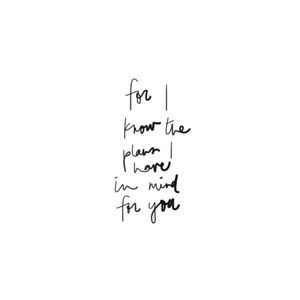 for I
know the
plans I
have
in mind
for you